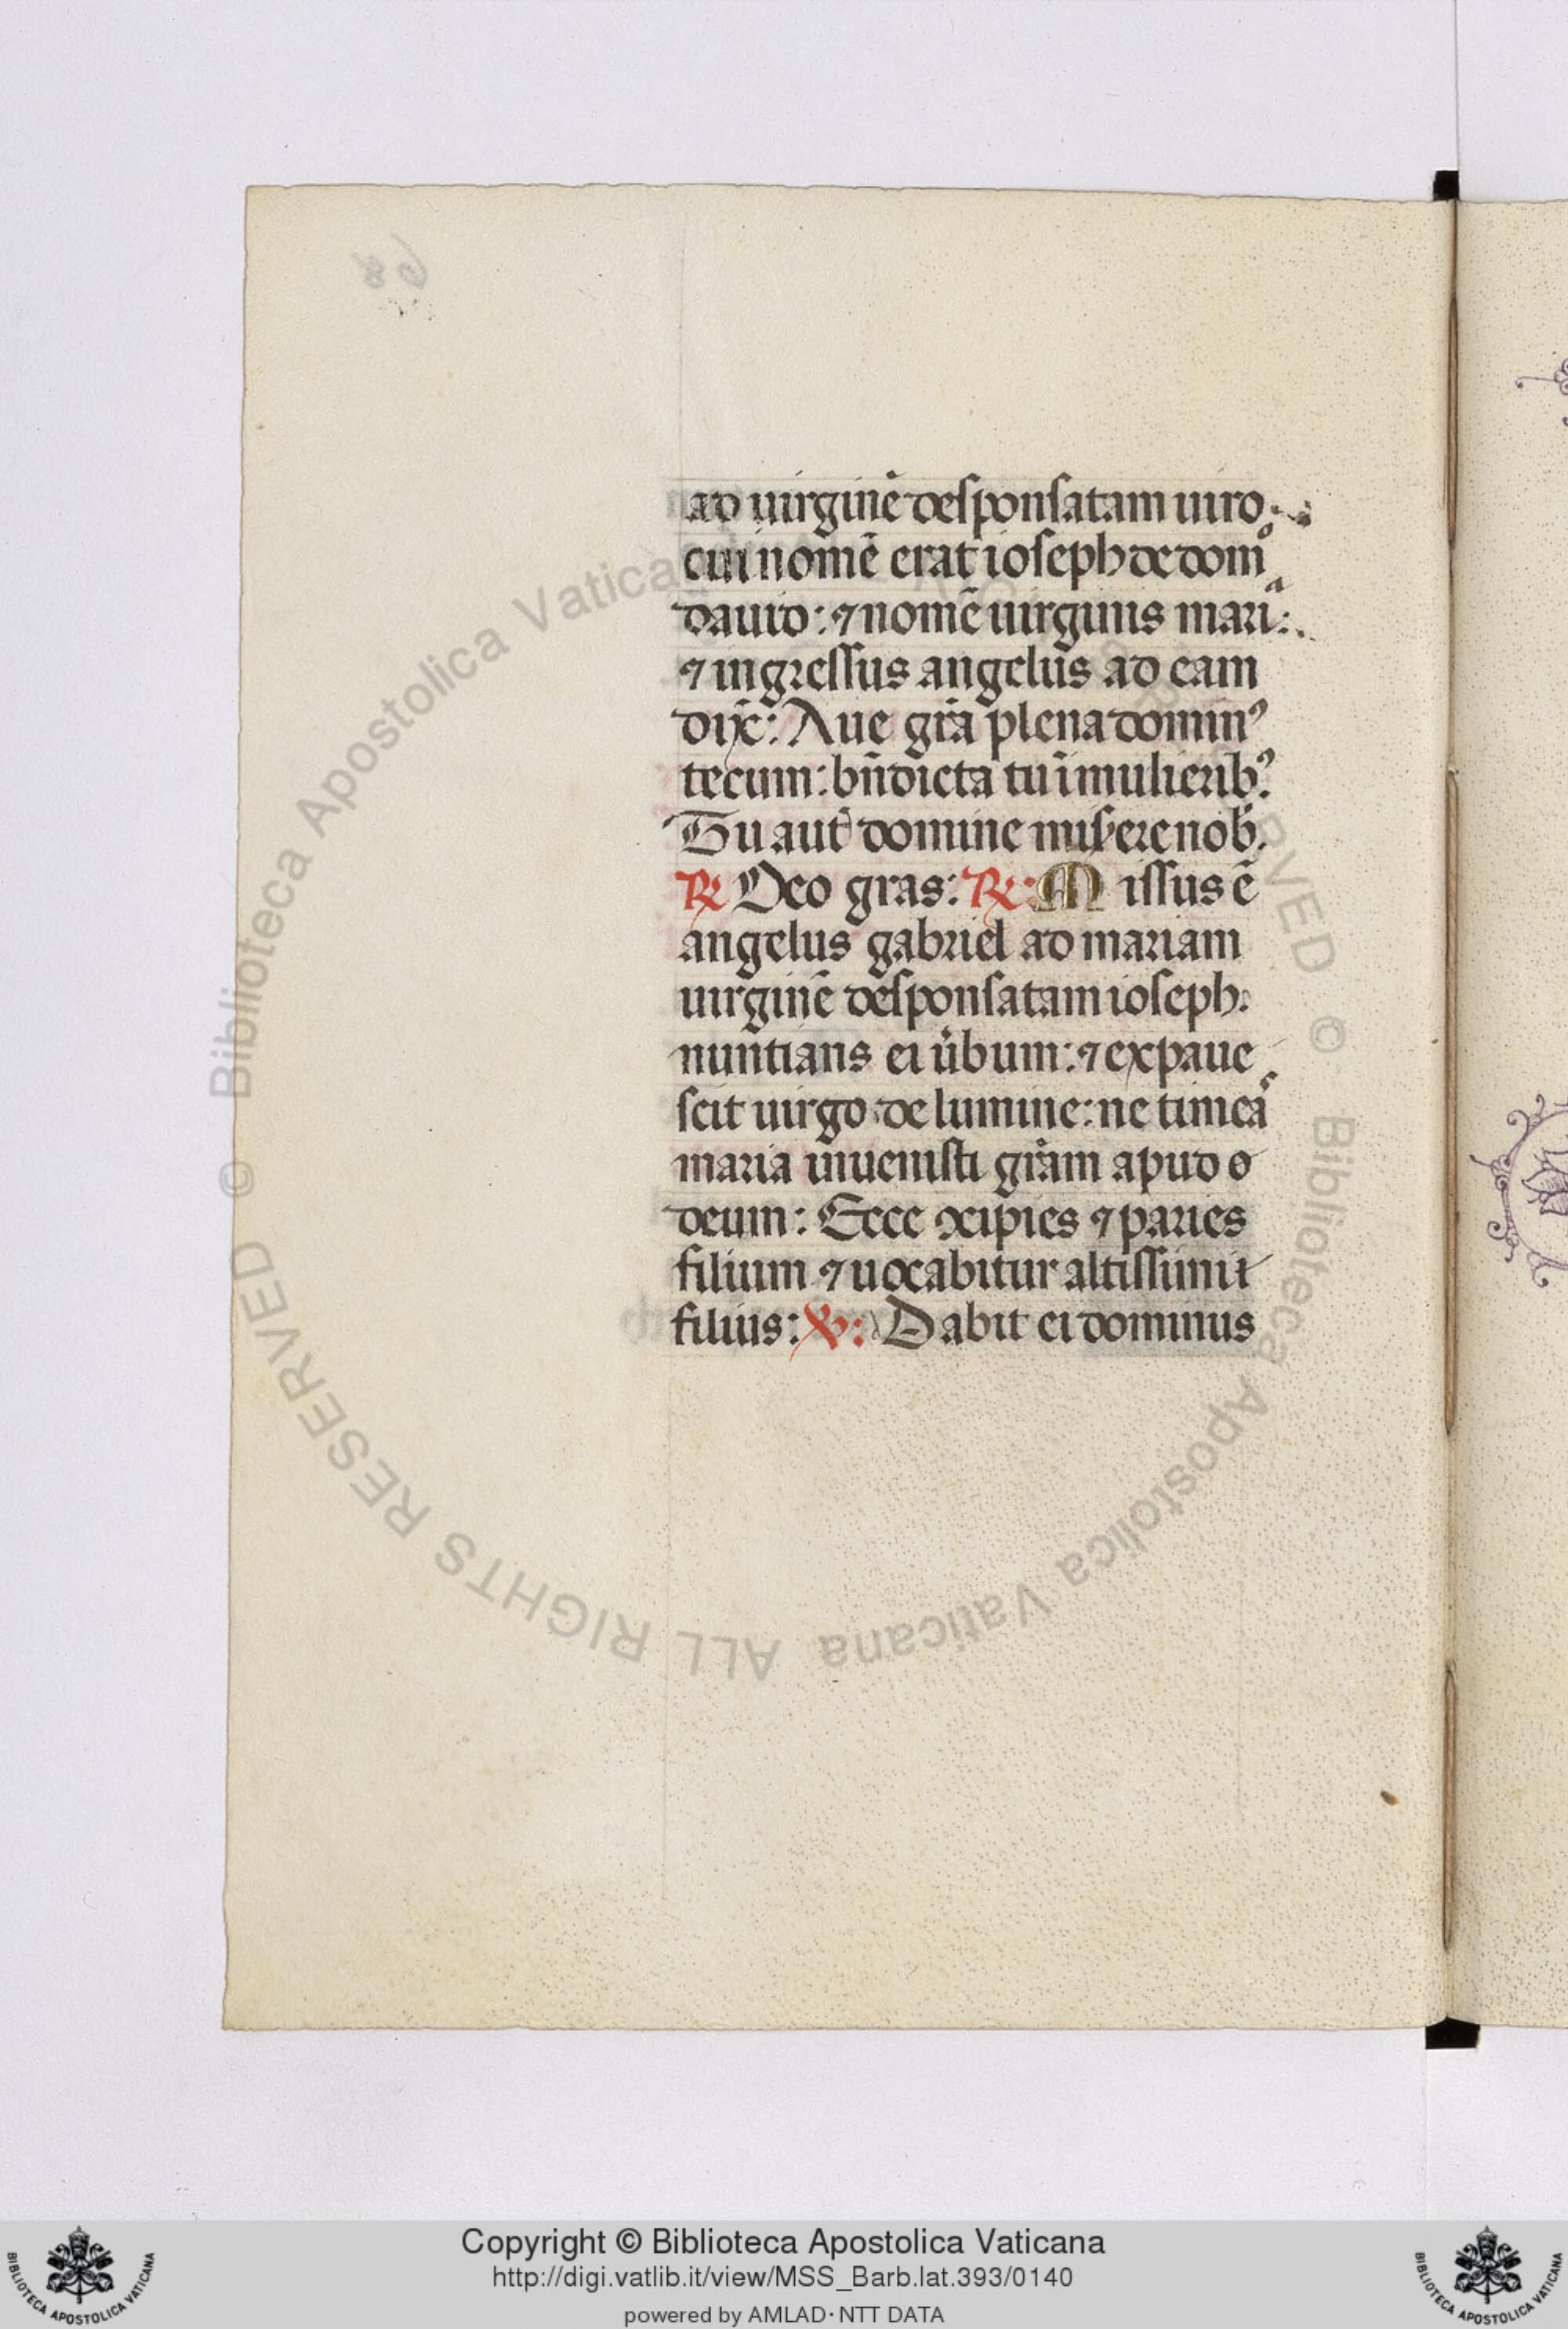 ad uirginē desponsatam uiro.
cui nomē erat ioseph de domͦ
dauid: ⁊ nomē uirginis mariͣ:
⁊ ingressus angelus ad eam
dix̄: Aue gr̄a plena domin⁹
tecum: bn̄dicta tu ī mulierib⁹.
Tu aut̄ domine miserere nob̄.
℞ Deo gras: ℞: Missus ē
angelus gabriel ad mariam
uirginē desponsatam ioseph:
nuntians ei u̇bum: ⁊ expaue
scit uirgo de lumine: ne timeaˢ
maria inuenisti gr̄am apud
deum: Ecce ↄcipies ⁊ paries
filium ⁊ uocabitur altissimi
filius: ℣: Dabit ei dominus
© Biblioteca Apostolica Vaticana ALL RIGHTS RESERVED
© Biblioteca Apostolica Vaticana ALL RIGHTS RESERVED
Copyright © Biblioteca Apostolica Vaticana
http://digi.vatlib.it/view/MSS_Barb.lat.393/0140
powered by AMLAD·NTT DATA
BIBLIOTECA APOSTOLICA VATICANA
BIBLIOTECA APOSTOLICA VATICANA